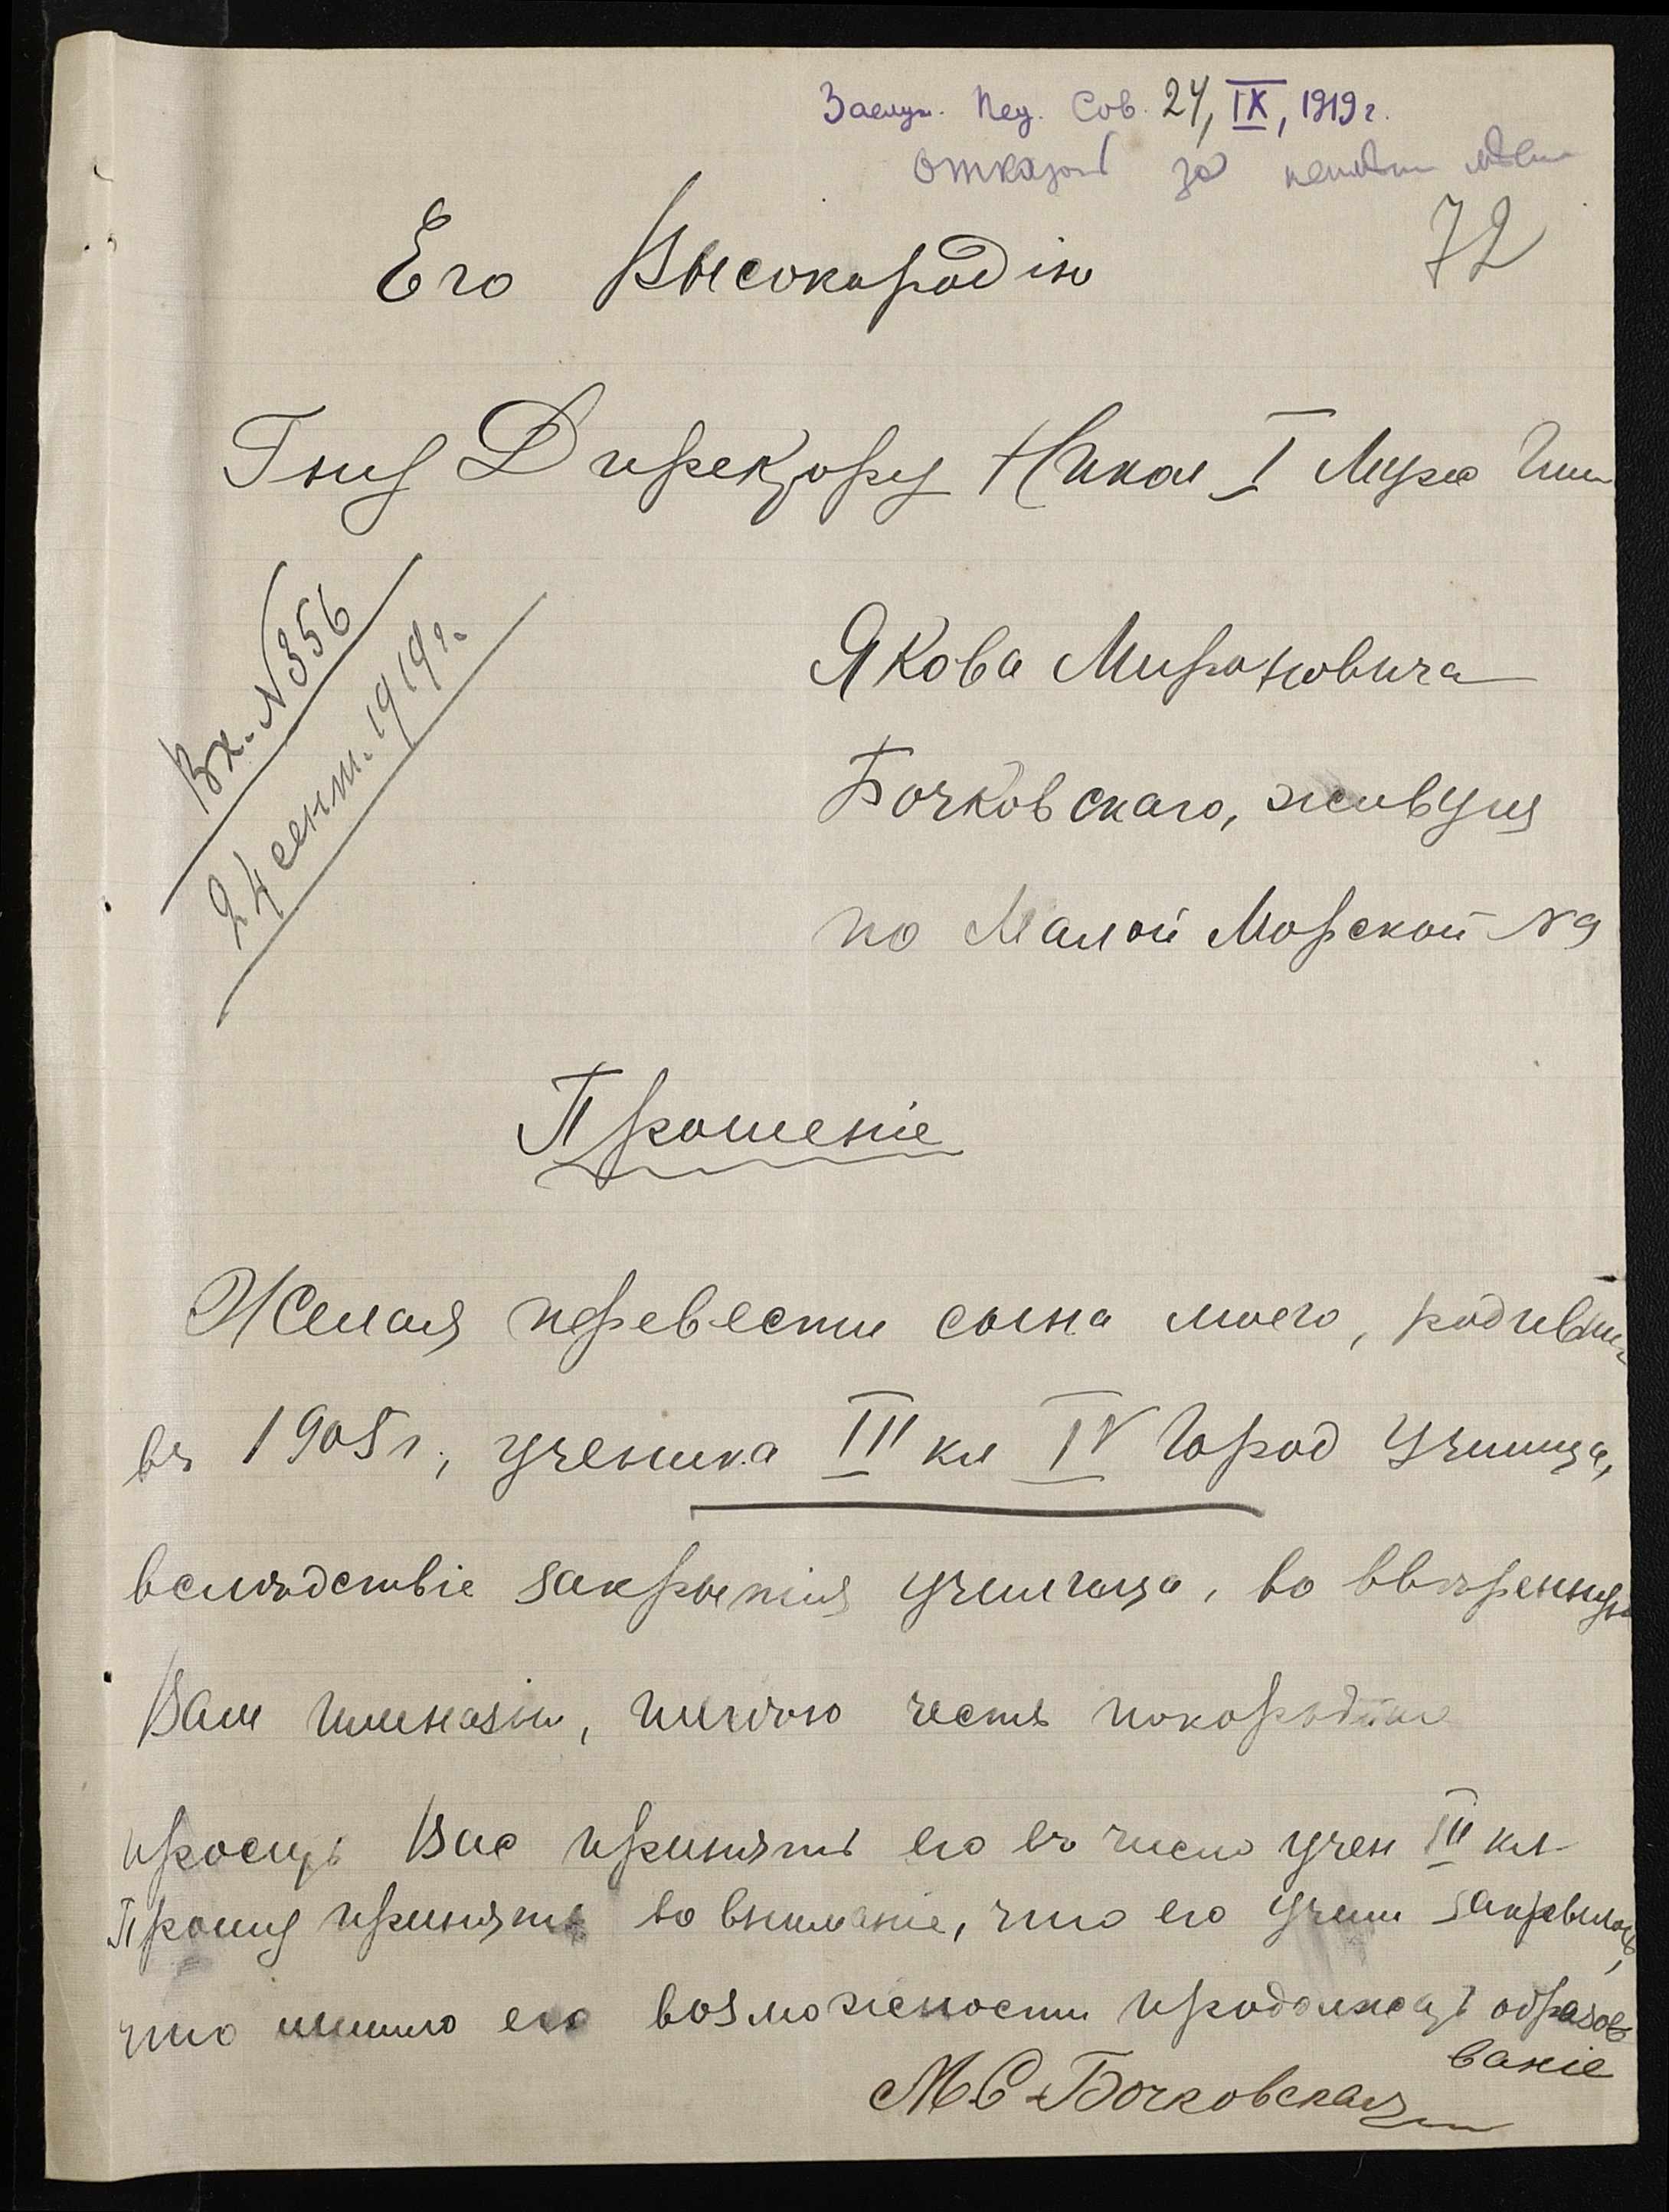 Заслуш. Пед. Сов. 24, IX, 1919 г.
отказать за неимѣн
72
Его Высокородію
Гну Директору Никол I Муж Гим
Вх. N 356
24 сент. 1919 г.
Якова Мироновича
Бочковскаго, живущ
по Малой Морской N 9
Прошеніе
Желая перевести сына моего, родивш
въ 1905 г, ученика III кл IV Город Училища,
вслѣдствіе закрытія училища, во ввѣренную
Вам гимназію, имѣю честь покорнѣйше
просить Вас принять его въ число учен III кл
Прошу принять во вниманіе, что его учил закрылось,
что лишило его возможности продолжать образо
ваніе
М С Бочковская